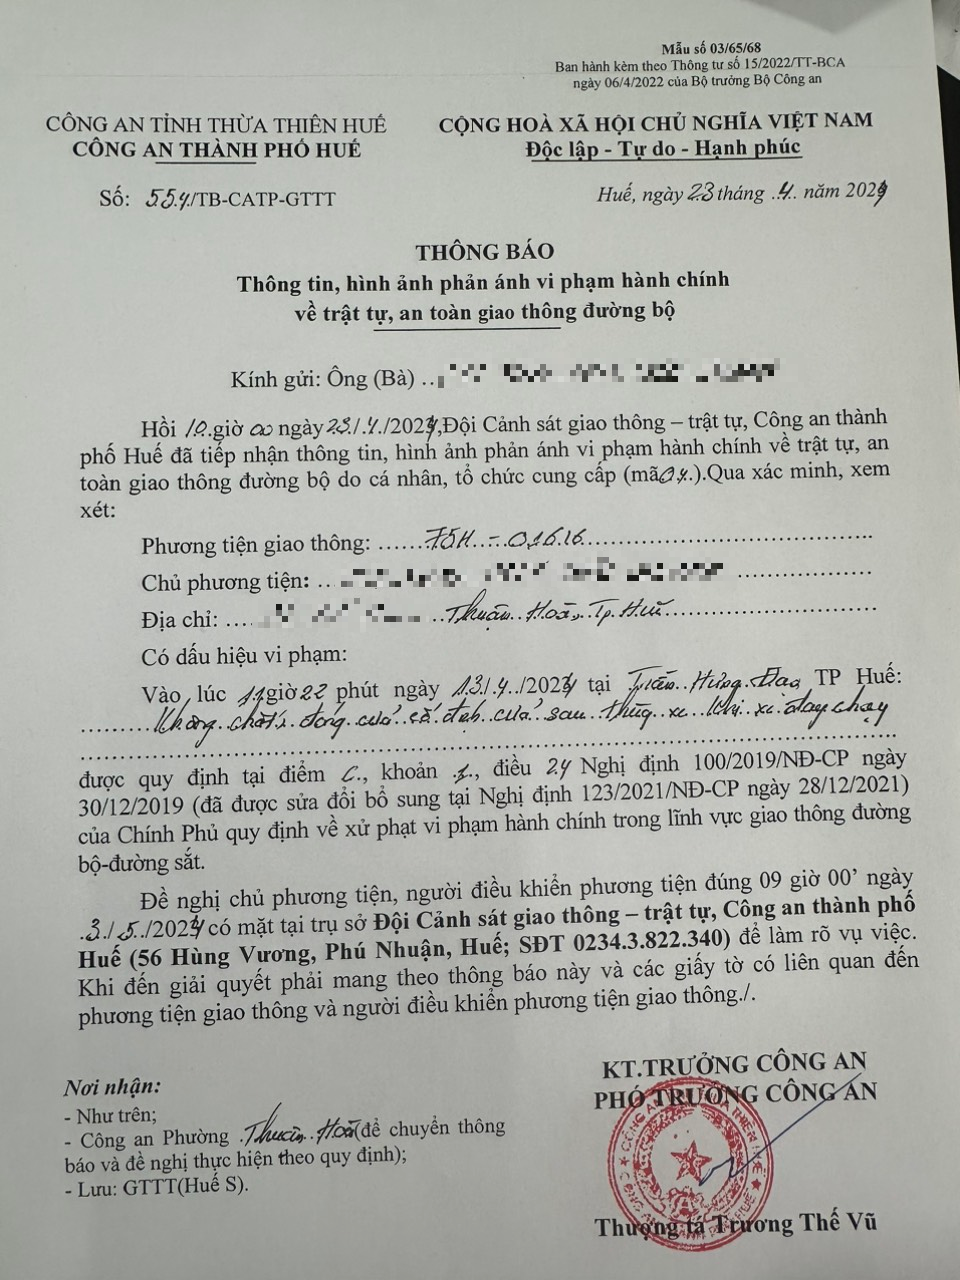 Mẫu số 03/65/68
Ban hành kèm theo Thông tư số 15/2022/TT-BCA
ngày 06/4/2022 của Bộ trưởng Bộ Công an
CÔNG AN TỈNH THỪA THIÊN HUẾ
CÔNG AN THÀNH PHỐ HUẾ
CỘNG HOÀ XÃ HỘI CHỦ NGHĨA VIỆT NAM
Độc lập - Tự do - Hạnh phúc
Số: 554/TB-CATP-GTTT
Huế, ngày 23 tháng .4.. năm 2024
THÔNG BÁO
Thông tin, hình ảnh phản ánh vi phạm hành chính
về trật tự, an toàn giao thông đường bộ
Kính gửi: Ông (Bà) ..
Hồi 10.giờ 00 ngày 23./.4./2024,Đội Cảnh sát giao thông – trật tự, Công an thành
phố Huế đã tiếp nhận thông tin, hình ảnh phản ánh vi phạm hành chính về trật tự, an
toàn giao thông đường bộ do cá nhân, tổ chức cung cấp (mã04.).Qua xác minh, xem
xét:
Phương tiện giao thông: ......75H..-..016.16...............
Chủ phương tiện: ... ...............
Địa chỉ: .... ..Thuận..Hoà,.Tp.Huế...............
Có dấu hiệu vi phạm:
Vào lúc 11giờ22 phút ngày .13./.4../2024 tại Trần..Hưng..Đạo, TP Huế:
.........Không..chốt,..đóng..cửa..cố..định..cửa..sau..thùng..xe..khi..xe..đang..chạy
...............
được quy định tại điểm C., khoản .1., điều 24 Nghị định 100/2019/NĐ-CP ngày
30/12/2019 (đã được sửa đổi bổ sung tại Nghị định 123/2021/NĐ-CP ngày 28/12/2021)
của Chính Phủ quy định về xử phạt vi phạm hành chính trong lĩnh vực giao thông đường
bộ-đường sắt.
Đề nghị chủ phương tiện, người điều khiển phương tiện đúng 09 giờ 00’ ngày
.3./.5../2024 có mặt tại trụ sở Đội Cảnh sát giao thông – trật tự, Công an thành phố
Huế (56 Hùng Vương, Phú Nhuận, Huế; SĐT 0234.3.822.340) để làm rõ vụ việc.
Khi đến giải quyết phải mang theo thông báo này và các giấy tờ có liên quan đến
phương tiện giao thông và người điều khiển phương tiện giao thông./.
Nơi nhận:
- Như trên;
- Công an Phường .Thuận..Hoà(để chuyển thông
báo và đề nghị thực hiện theo quy định);
- Lưu: GTTT(Huế S).
KT.TRƯỞNG CÔNG AN
PHÓ TRƯỞNG CÔNG AN
Thượng tá Trương Thế Vũ